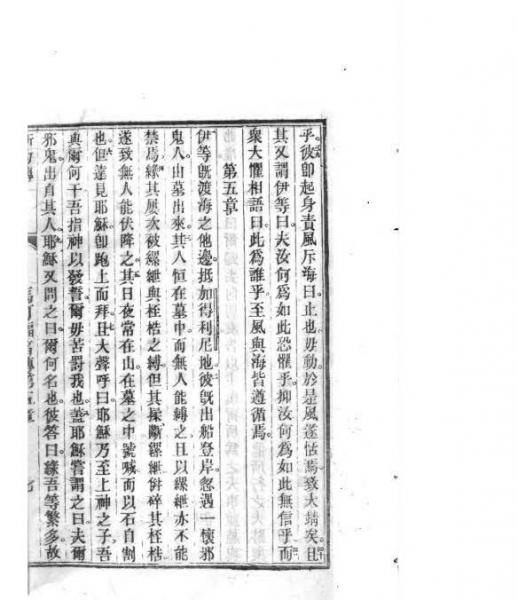 乎。彼卽起身責風斥海曰。止也。毋動。於是風遂怙焉。致大靜矣。且
其又謂伊等曰。夫汝何爲如此恐懼乎。抑汝何爲如此無信乎。而
衆大懼相語曰。此爲誰乎。至風與海皆遵循焉。
第五章
伊等旣渡海之他邊抵加得利尼地。彼旣出船登岸。忽遇一懷邪
鬼人。由墓出來。其人恒在墓中。而無人能縛之。且以縲紲亦不能
禁焉。緣其屢次被縲紲與桎梏之縛。但其採斷縲紲倂碎其桎梏
遂致無人能伏降之。其日夜常在山在墓之中號喊而以石自割
也。但遠見耶穌卽跑上而拜。且大聲呼曰。耶穌乃至上神之子。吾
與爾何干。吾指神以發誓。爾毋苦罰我也。蓋耶穌嘗謂之曰。夫爾
邪鬼出自其人。耶穌又問之曰。爾何名也。彼答曰。緣吾等繁多。故
馬可福音傳第五章
七